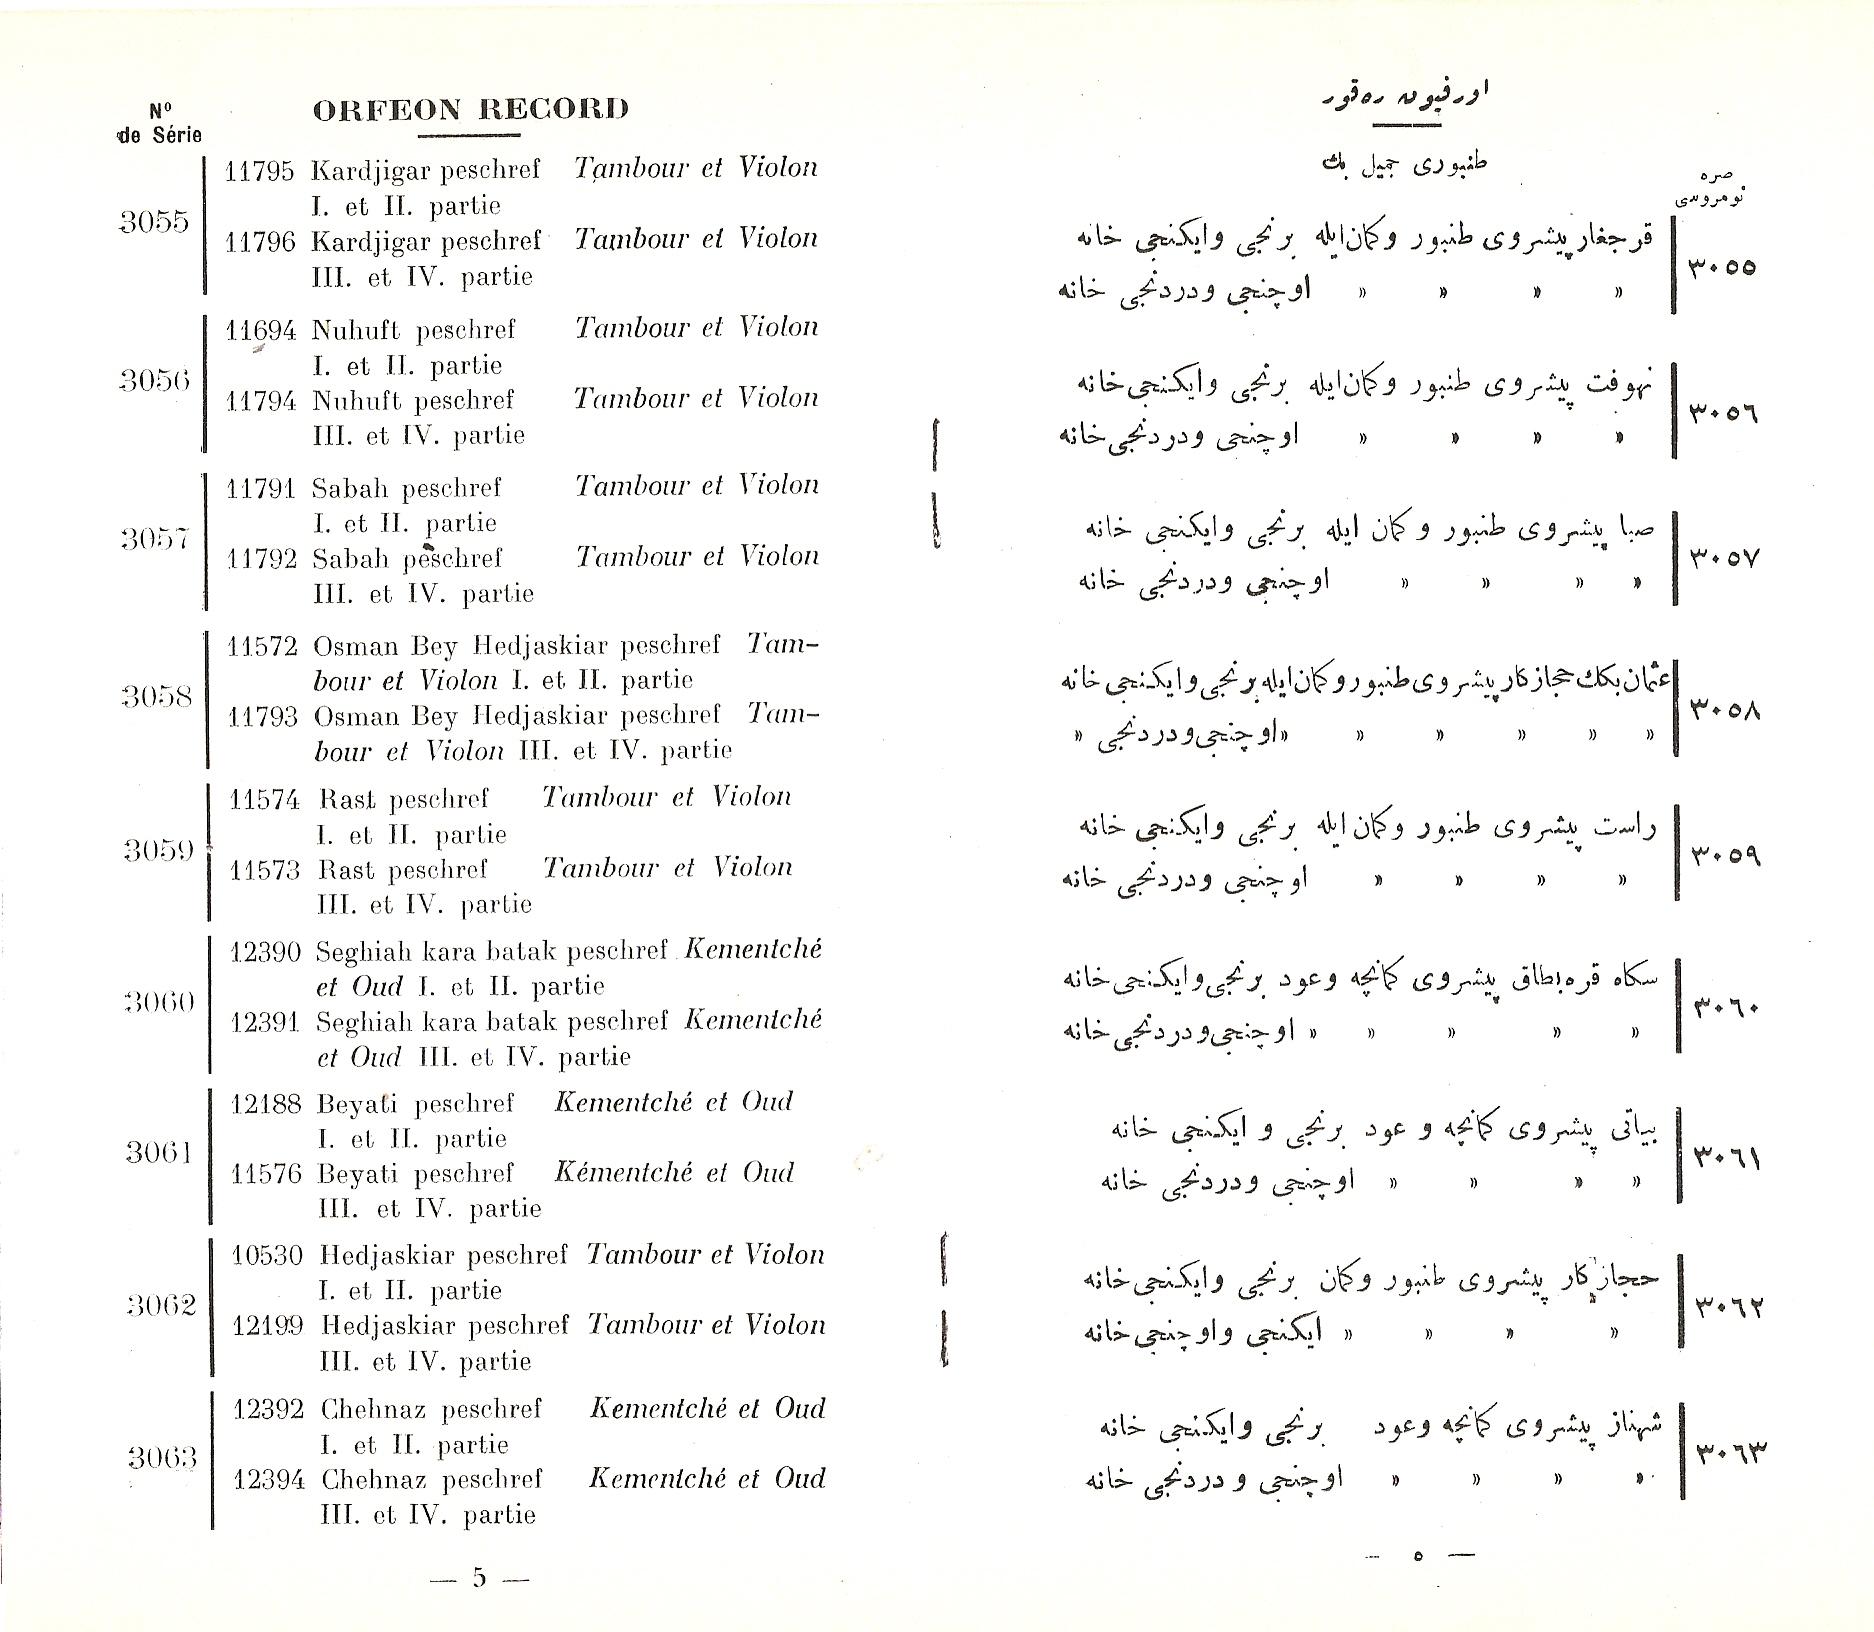 Nº
de Série
ORFEON RECORD
3055
11795 Kardjigar peschref Tambour et Violon
I. et II. partie
11796 Kardjigar peschref Tambour et Violon
III. et IV. partie
3056
11694 Nuhuft peschref Tambour et Violon
I. et II. partie
11794 Nuhuft peschref Tambour et Violon
III. et IV. partie
3057
11791 Sabah peschref Tambour et Violon
I. et II. partie
11792 Sabah peschref Tambour et Violon
III. et IV. partie
3058
11572 Osman Bey Hedjaskiar peschref Tam-
bour et Violon I. et II. partie
11793 Osman Bey Hedjaskiar peschref Tam-
bour et Violon III. et IV. partie
3059
11574 Rast peschref Tambour et Violon
I. et II. partie
11573 Rast peschref Tambour et Violon
III. et IV. partie
3060
12390 Seghiah kara batak peschref Kementché
et Oud I. et II. partie
12391 Seghiah kara batak peschref Kementché
et Oud III. et IV. partie
3061
12188 Beyati peschref Kementché et Oud
I. et II. partie
11576 Beyati peschref Kémentché et Oud
III. et IV. partie
3062
10530 Hedjaskiar peschref Tambour et Violon
I. et II. partie
12199 Hedjaskiar peschref Tambour et Violon
III. et IV. partie
3063
12392 Chehnaz peschref Kementché et Oud
I. et II. partie
12394 Chehnaz peschref Kementché et Oud
III. et IV. partie
— 5 —
اورفيون ره قور
طنبوری جمیل بك
صره
نومروسی
٣٠٥٥
قرجغار پیشروی طنبور وکمان ایله برنجی وایکنجی خانه
» » » » اوچنجی ودردنجی خانه
٣٠٥٦
نهوفت پیشروی طنبور وکمان ایله برنجی وایکنجی خانه
» » » » اوچنجی ودردنجی خانه
٣٠٥٧
صبا پیشروی طنبور وکمان ایله برنجی وایکنجی خانه
» » » » اوچنجی ودردنجی خانه
٣٠٥٨
عثمان بكك حجازکار پیشروی طنبور وکمان ایله برنجی وایکنجی خانه
» » » » » »اوچنجی ودردنجی »
٣٠٥٩
راست پیشروی طنبور وکمان ایله برنجی وایکنجی خانه
» » » » اوچنجی ودردنجی خانه
٣٠٦٠
سكاه قره بطاق پیشروی کمانچه وعود برنجی وایکنجی خانه
» » » » » اوچنجی ودردنجی خانه
٣٠٦١
بیاتی پیشروی کمانچه وعود برنجی وایکنجی خانه
» » » » اوچنجی ودردنجی خانه
٣٠٦٢
حجازکار پیشروی طنبور وکمان برنجی وایکنجی خانه
» » » » ایکنجی واوچنجی خانه
٣٠٦٣
شهناز پیشروی کمانچه وعود برنجی وایکنجی خانه
» » » » اوچنجی ودردنجی خانه
— ٥ —